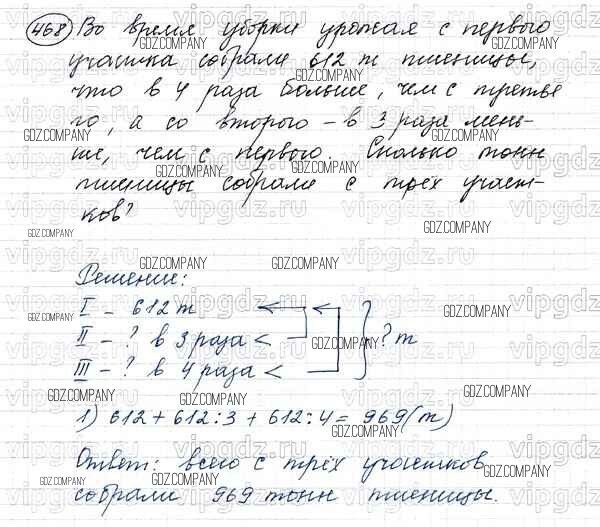 468 Во время уборки урожая с первого
участка собрали 612 т пшеницы,
что в 4 раза больше, чем с третье
го, а со второго – в 3 раза мень-
ше, чем с первого. Сколько тонн
пшеницы собрали с трёх участ-
ков?
Решение:
I – 612 т
II – ? в 3 раза <
III – ? в 4 раза <
? т
1) 612 + 612:3 + 612:4 = 969 (т)
Ответ: всего с трёх участков
собрали 969 тонн пшеницы.
GDZ.COMPANY
vipgdz.ru